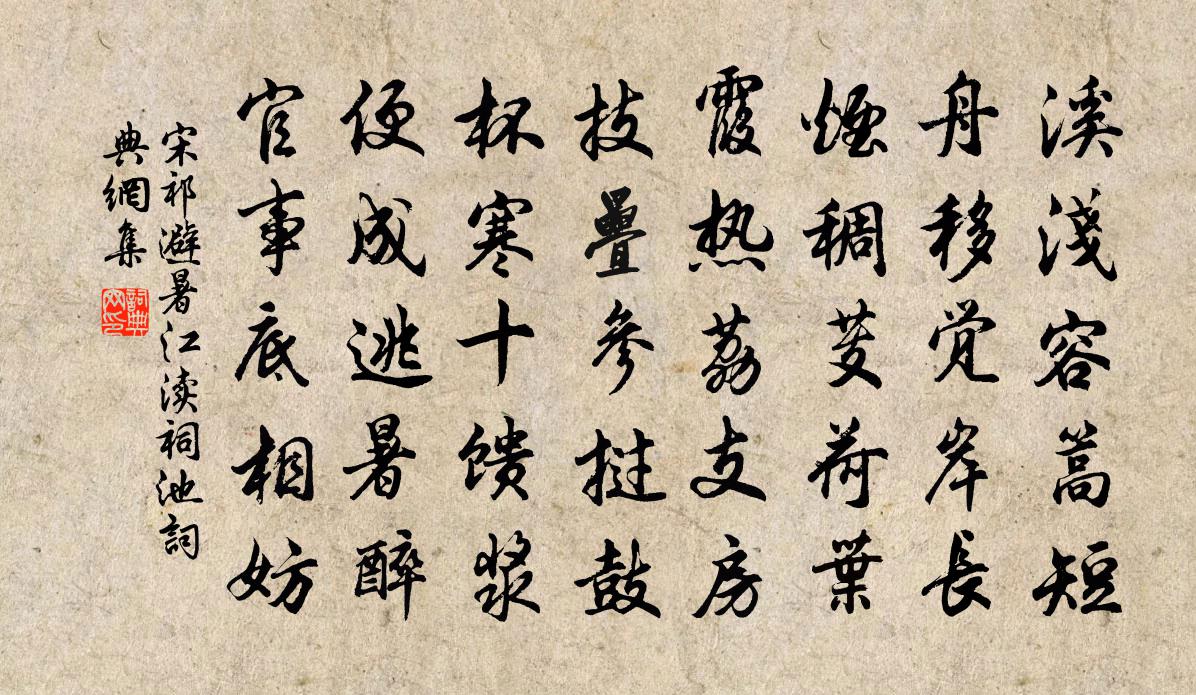 溪淺容篙短
舟移覺岸長
煙稠芰荷葉
霞热荔支房
技疊參撾鼓
杯寒十馈漿
便成逃暑醉
官事底相妨
宋祁避暑江渎祠池詞
典網集
詞典網印